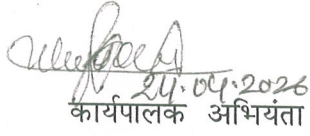 24.04.2026
कार्यपालक अभियंता